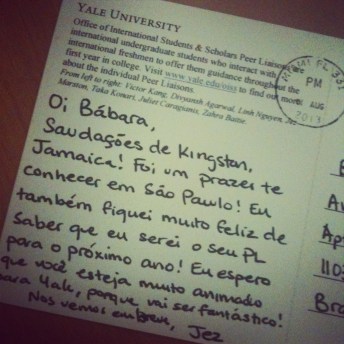 YALE UNIVERSITY
Office of International Students & Scholars Peer Liaisons are
international undergraduate students who interact with
international freshmen to offer them guidance throughout the
first year in college. Visit www.yale.edu/oiss to find out more
about the individual Peer Liaisons.
From left to right: Victor Kang, Divyansh Agarwal, Linh Nguyen, Jez
Marston, Taka Kowari, Juliet Caragianis, Zahra Baitie.
MIAMI FL 331
PM
AUG
2013
Oi Bábara,
Saudações de Kingston,
Jamaica! Foi um prazer te
conhecer em São Paulo! Eu
também fiquei muito feliz de
saber que eu serei o seu PL
para o próximo ano! Eu espero
que você esteja muito animado
para Yale, porque vai ser fantástico!
Nos vemos embreve, Jez
B
Av
Ap
110
Bra